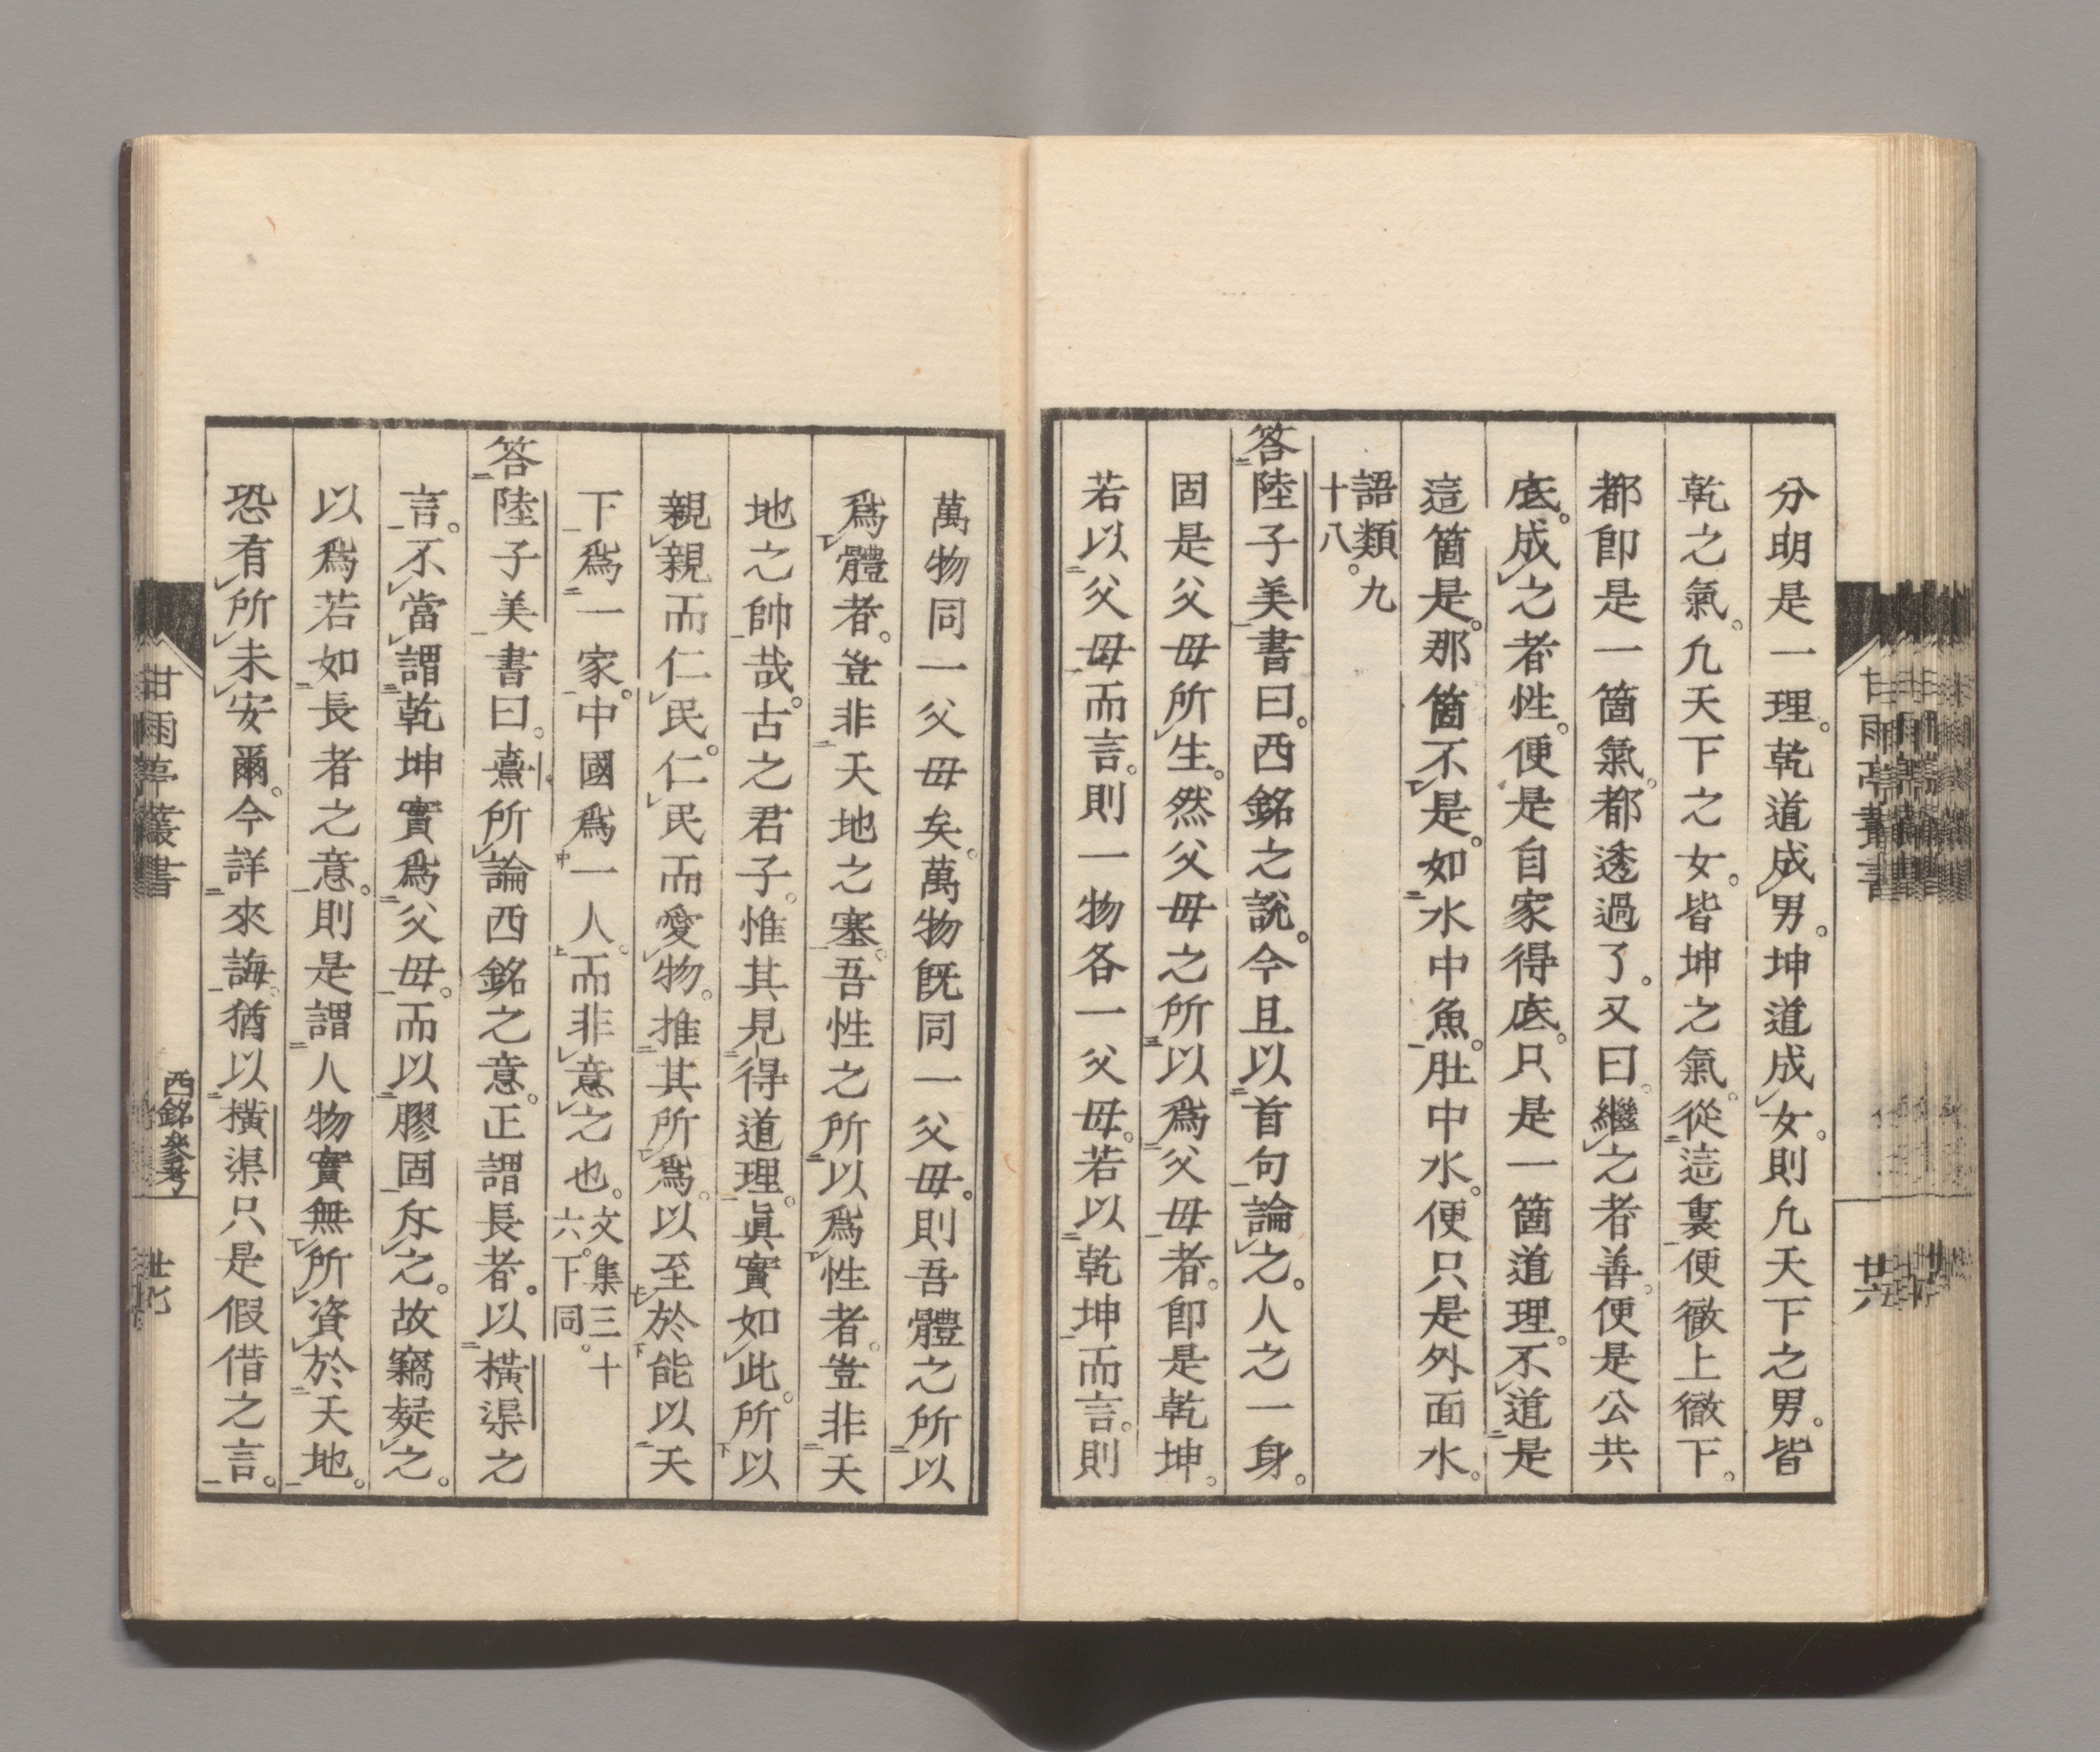 分明是一理。乾道成男。坤道成女。則凢天下之男。皆
乾之氣。凢天下之女。皆坤之氣。從這裏便徹上徹下。
都卽是一箇氣。都透過了。又曰。繼之者善。便是公共
底。成之者性。便是自家得底。只是一箇道理。不道是
這箇是。那箇不是。如水中魚。肚中水。便只是外面水。
語類。九
十八。
答陸子美書曰。西銘之說。今且以首句論之。人之一身。
固是父母所生。然父母之所以爲父母者。卽是乾坤。
若以父母而言。則一物各一父母。若以乾坤而言。則
甘雨亭叢書
廿六
萬物同一父母矣。萬物旣同一父母。則吾體之所以
爲體者。豈非天地之塞。吾性之所以爲性者。豈非天
地之帥哉。古之君子。惟其見得道理。眞實如此。所以
親親而仁民。仁民而愛物。推其所爲。以至於能以天
下爲一家。中國爲一人。而非意之也。
文集三十
六。下同。
答陸子美書曰。熹所論西銘之意。正謂長者。以橫渠之
言。不當謂乾坤實爲父母。而以膠固斥之。故竊疑之。
以爲若如長者之意。則是謂人物實無所資於天地。
恐有所未安爾。今詳來誨。猶以橫渠只是假借之言。
甘雨亭叢書
西銘參考